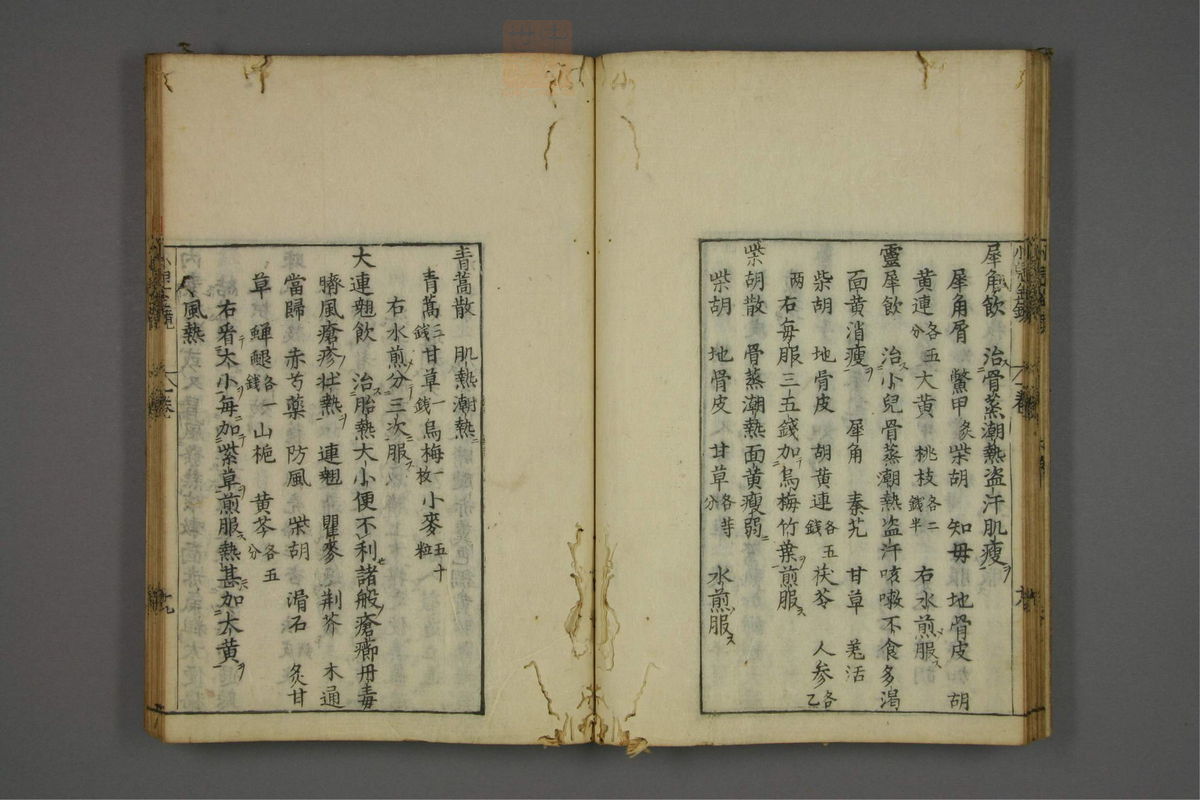 犀角飲　治骨蒸潮熱盗汗肌瘦ヲ
犀角屑　鱉甲炙柴胡　知母　地骨皮　胡
黄連各五分　大黄　桃枝各二錢半　右水煎服ス
靈犀飲　治小兒骨蒸潮熱盗汗咳嗽不食多渴
面黄消瘦ヲ　犀角　秦艽　甘草　羌活
柴胡　地骨皮　胡黄連各五錢　茯苓　人参各乙
兩　右毎服三五錢加烏梅竹葉煎服ス
柴胡散　骨蒸潮熱面黄瘦弱ニ
柴胡　地骨皮　甘草各等分　水煎服ス
青蒿散　肌熱潮熱ニ
青蒿三錢　甘草一錢　烏梅一枚　小麥五十粒
右水煎分三次服ス
大連翹飲　治胎熱大小便不利諸般瘡癤丹毒
臍風瘡疹壯熱ヲ　連翹　瞿麥　荆芥　木通
當歸　赤芍藥　防風　柴胡　滑石　炙甘
草　蟬蛻各一錢　山梔　黄芩各五分
右看大小毎加紫草煎服熱甚加大黄ヲ
風熱